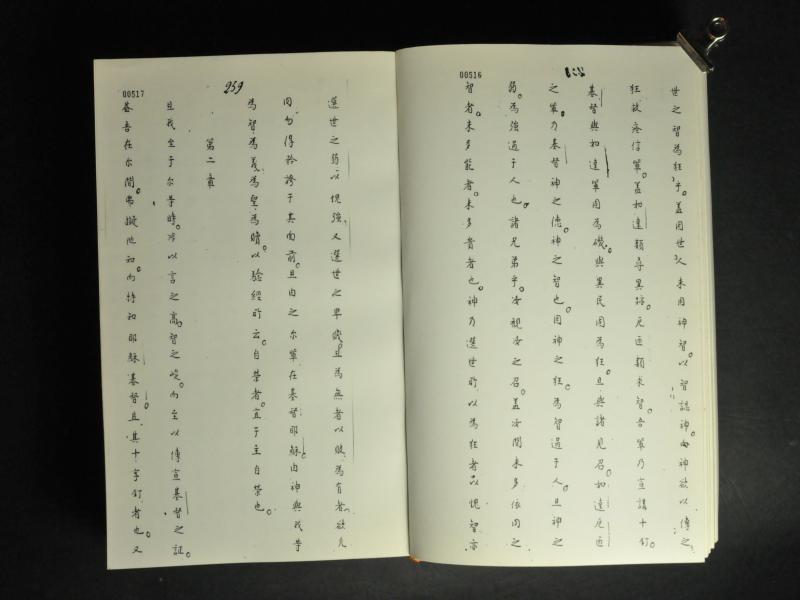 00516
世之智為狂乎。蓋因世人未因神智。以智認神。而神欲以傳之
狂救凂信輩。蓋如達頪尋異跡。厄匝頪求智。吾輩乃宣講十釘。
基督與如達輩因為磯。與異民因為狂。且與諸見召。如達厄匝
之輩。乃基督神之德。神之智也。因神之狂。為智過于人。且神之
弱。為強過于人也。諸兄弟乎。汝視汝之召。蓋汝間未多依肉之
智者。未多能者。未多貴者也。神乃選世所以為狂者。以愧智。亦
00517
239
選世之弱。以愧強。又選世之卑賤。且為無者。以敗為有者。欲凡
肉勿得矜誇于其面前。且由之尔輩在基督耶穌。由神與我等
為智為義為聖為贖。以驗經所云。自榮者。宜于主自榮也。
第二章
且我至于尔等時。不以言之高。智之峻。而至以傳宣基督之証。
蓋吾在尔間。弗擬他知。而特知耶穌基督。且其十字釘者也。又